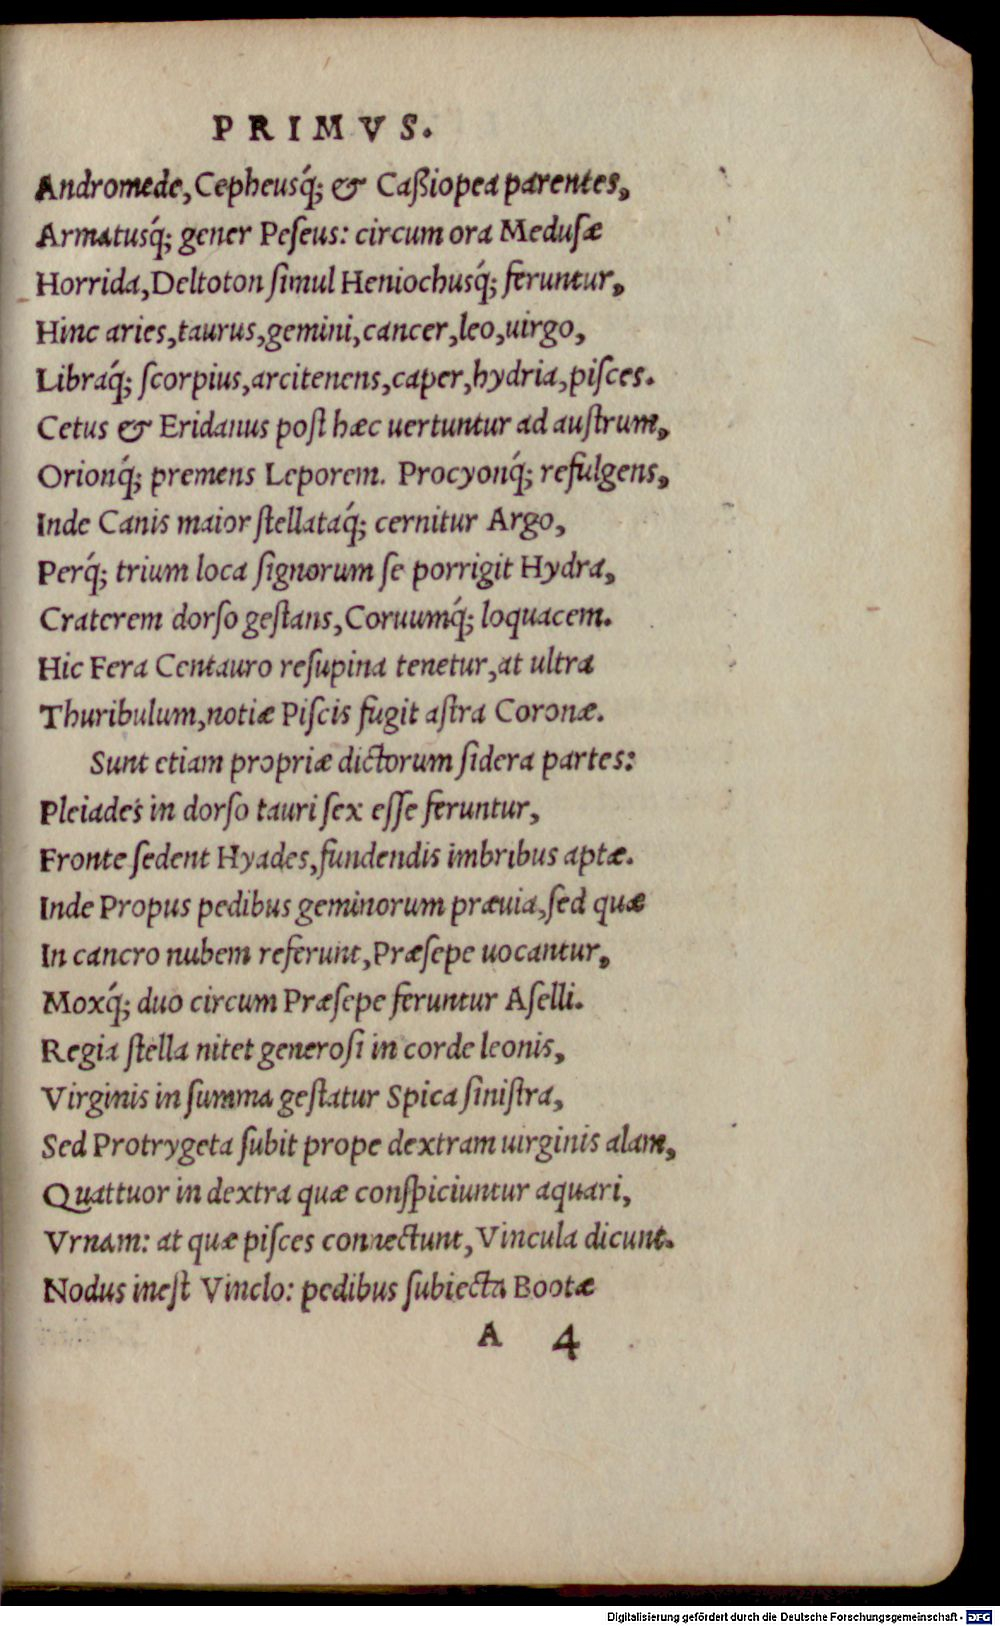 PRIMVS.
Andromede, Cepheusq́; & Caßiopea parentes,
Armatusq́; gener Peſeus: circum ora Meduſæ
Horrida, Deltoton ſimul Heniochusq́; feruntur,
Hinc aries, taurus, gemini, cancer, leo, uirgo,
Libraq́; ſcorpius, arcitenens, caper, hydria, piſces.
Cetus & Eridanus poſt hæc uertuntur ad auſtrum,
Orionq́; premens Leporem. Procyonq́; refulgens,
Inde Canis maior ſtellataq́; cernitur Argo,
Perq́; trium loca ſignorum ſe porrigit Hydra,
Craterem dorſo geſtans, Coruumq́; loquacem.
Hic Fera Centauro reſupina tenetur, at ultra
Thuribulum, notiæ Piſcis fugit aſtra Coronæ.
Sunt etiam propriæ dictorum ſidera partes:
Pleiades in dorſo tauri ſex eſſe feruntur,
Fronte ſedent Hyades, fundendis imbribus aptæ.
Inde Propus pedibus geminorum præuia, ſed quæ
In cancro nubem referunt, Præſepe uocantur,
Moxq́; duo circum Præſepe feruntur Aſelli.
Regia ſtella nitet generoſi in corde leonis,
Virginis in ſumma geſtatur Spica ſiniſtra,
Sed Protrygeta ſubit prope dextram uirginis alam,
Quattuor in dextra quæ conſpiciuntur aquari,
Vrnam: at quæ piſces connectunt, Vincula dicunt.
Nodus ineſt Vinclo: pedibus ſubiecta Bootæ
A 4
Digitalisierung gefördert durch die Deutsche Forschungsgemeinschaft - DFG